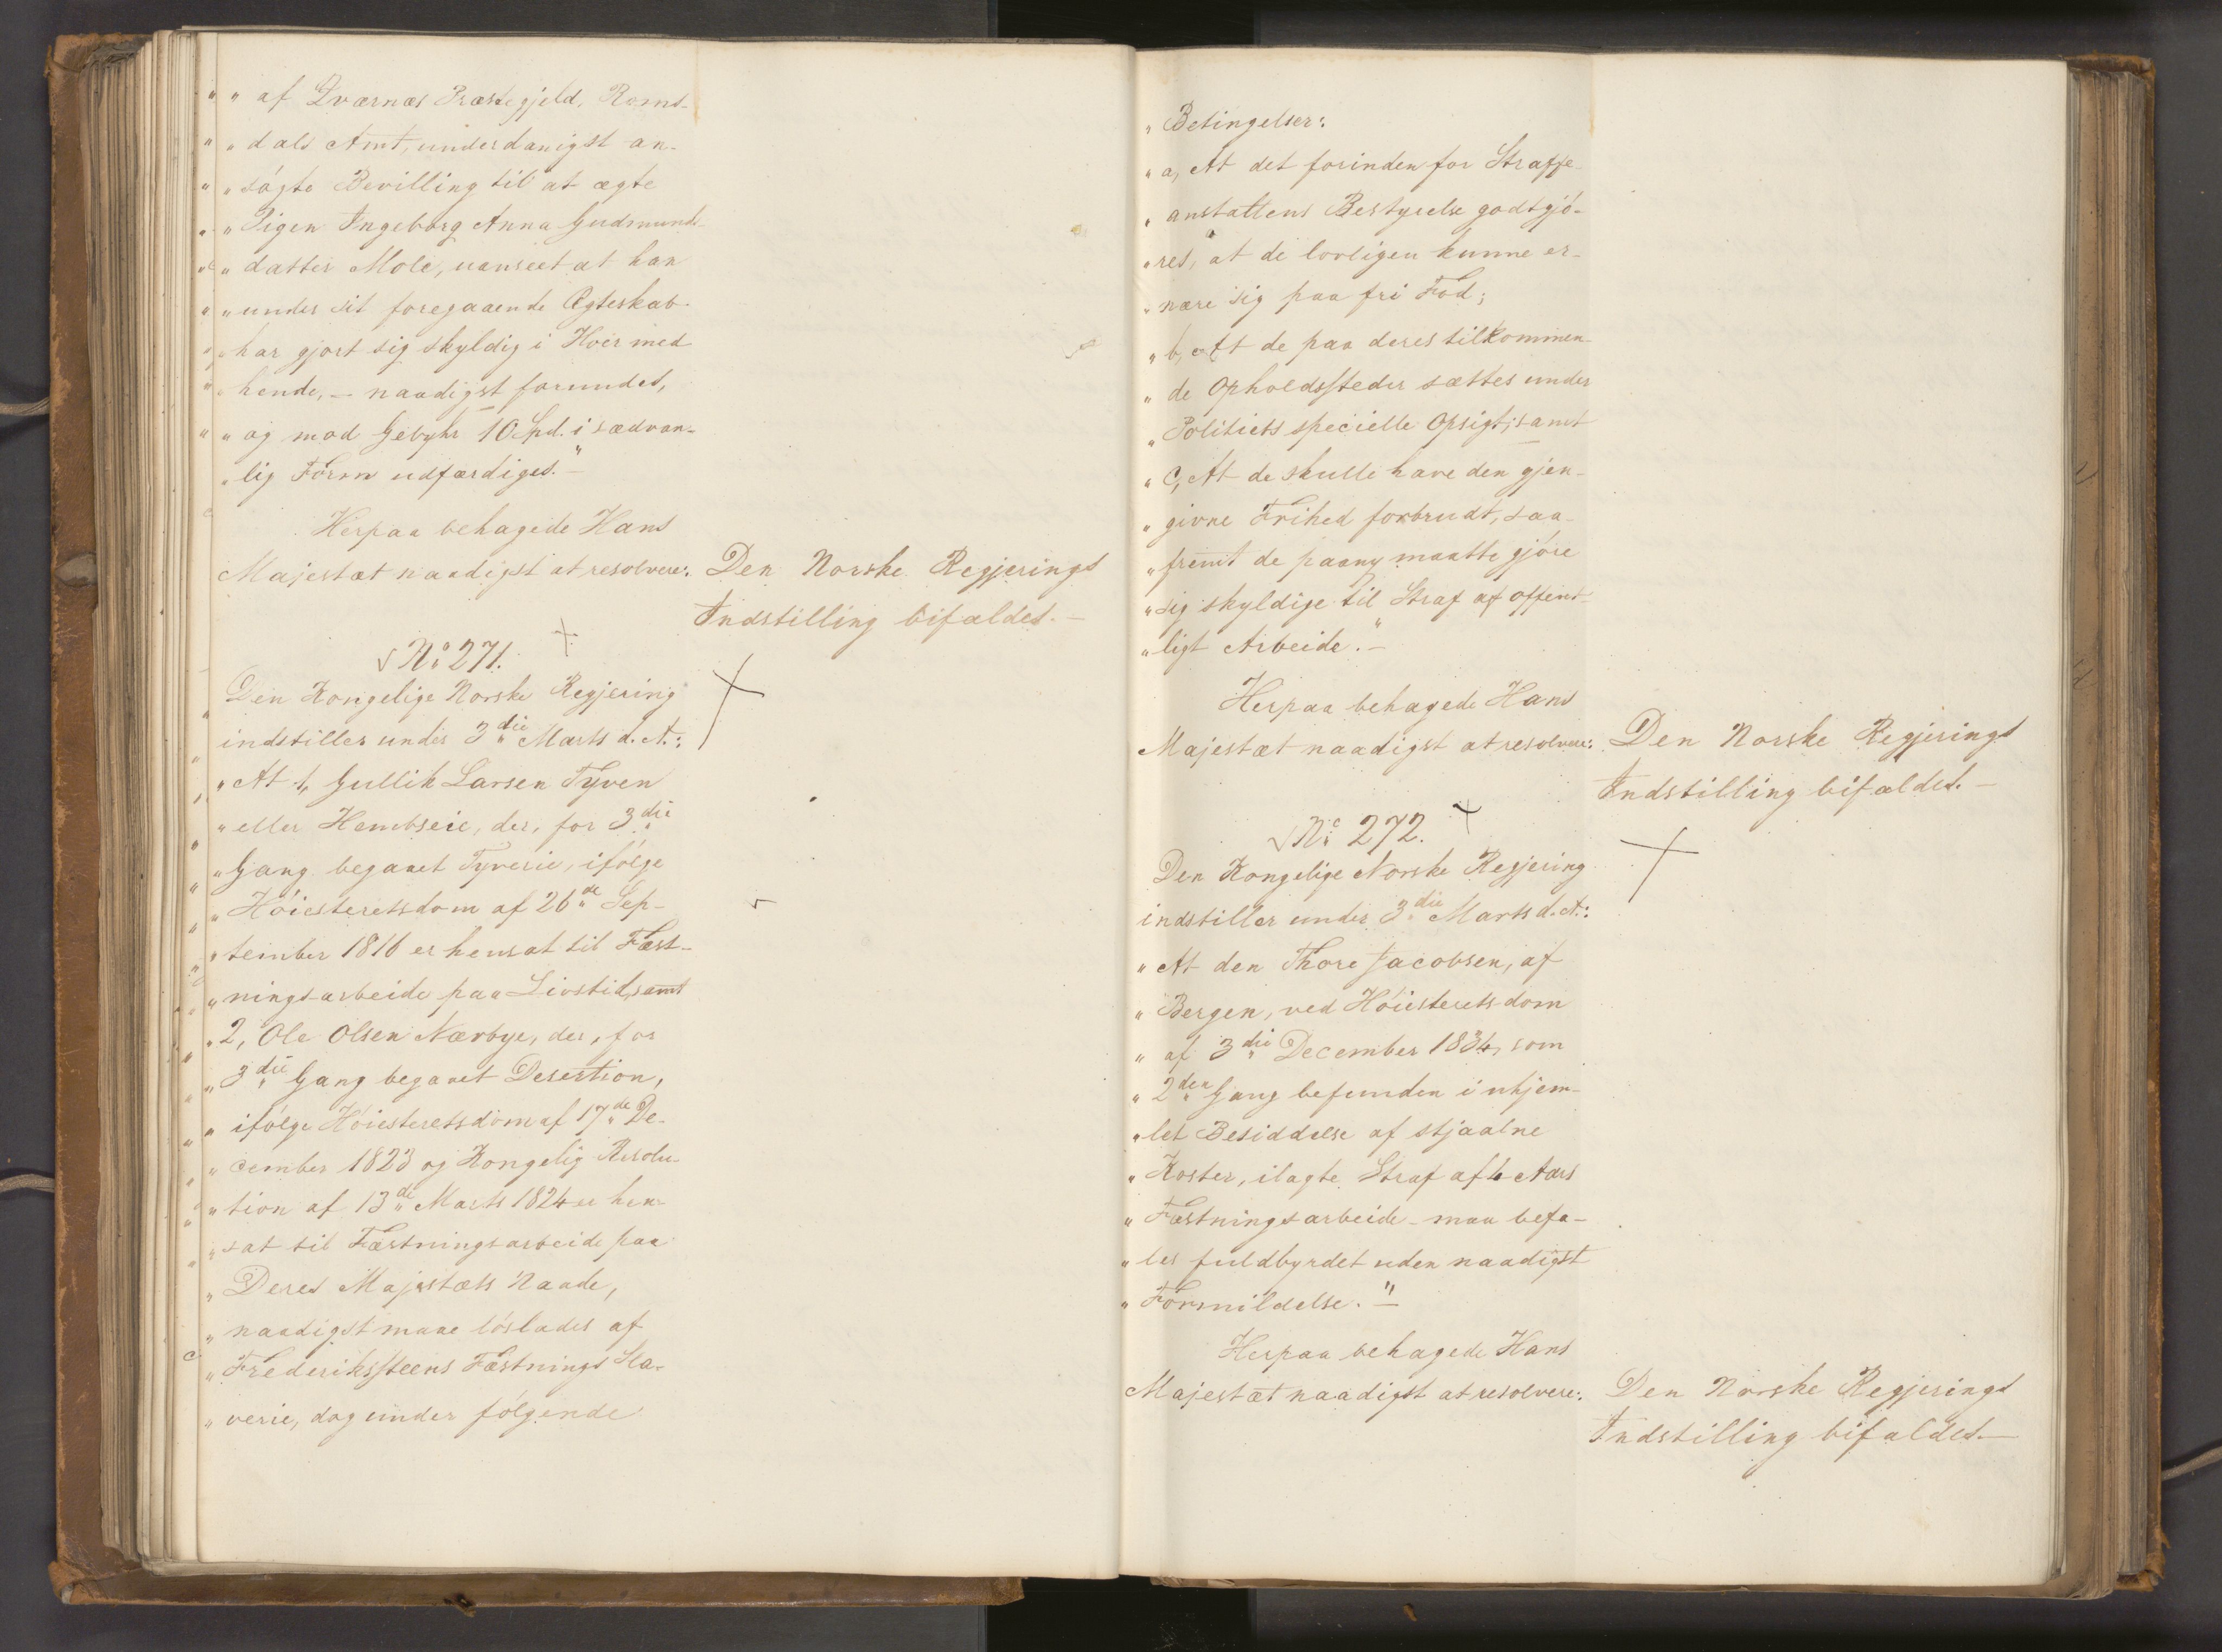 " " af Qværnæs Præstegjeld, Roms-
" " dals Amt, underdanigst an-
" " søgte Bevilling til at ægte
" " Pigen Ingeborg Anna Gudmunds-
" " datter Mole, uanseet at han
" " under sit foregaaende Ægteskab
" " har gjort sig skyldig i Hoer med
" " hende, – naadigst forundes,
" " og mod Gebyhr 10 Spd. i sædvan-
" lig Form udfærdiges." –
Herpaa behagede Hans
Majestæt naadigst at resolvere:
Den Norske Regjerings
Indstilling bifaldes. –
No 271.
Den Kongelige Norske Regjering
indstiller under 3die Marts d. A.:
" At 1, Gullik Larsen Tyven
" eller Hembseie, der, for 3die
" Gang begaaet Tyverie, ifølge
" Høiesteretsdom af 26de Sep-
" tember 1816 er hensat til Fæst-
" ningsarbeide paa Livstid, samt
" 2, Ole Olsen Nærbye, der, for
" 3die Gang begaaet Desertion,
" ifølge Høiesteretsdom af 17de De-
" cember 1823 og Kongelig Resolu-
" tion af 13de Marts 1824 er hen-
" sat til Fæstningsarbeide paa
" Deres Majestæts Naade,
" naadigst maae løslades af
" Frederikssteens Fæstnings Sla-
" verie, dog under følgende
" Betingelser:
" a, At det forinden for Straffe-
" anstaltens Bestyrelse godtgjø-
" res, at de lovligen kunne er-
" nære sig paa fri Fod;
" b, At de paa deres tilkommen-
" de Opholdssteder sættes under
" Politiets specielle Opsigt; samt
" c, At de skulle have den gjen-
" givne Frihed forbrudt, saa-
" fremt de paany maatte gjøre
" sig skyldige til Straf af offent-
" ligt Arbeide." –
Herpaa behagede Hans
Majestæt naadigst at resolvere:
Den Norske Regjerings
Indstilling bifaldes. –
No 272.
Den Kongelige Norske Regjering
indstiller under 3die Marts d. A.:
" At den Thore Jacobsen, af
" Bergen, ved Høiesteretsdom
" af 3die December 1834, som
" 2den Gang befunden i uhjem-
" let Besiddelse af stjaalne
" Koster, ilagte Straf af 4 Aars
" Fæstningsarbeide – maa befa-
" les fuldbyrdet uden naadigst
" Formildelse." –
Herpaa behagede Hans
Majestæt naadigst at resolvere:
Den Norske Regjerings
Indstilling bifaldes. –